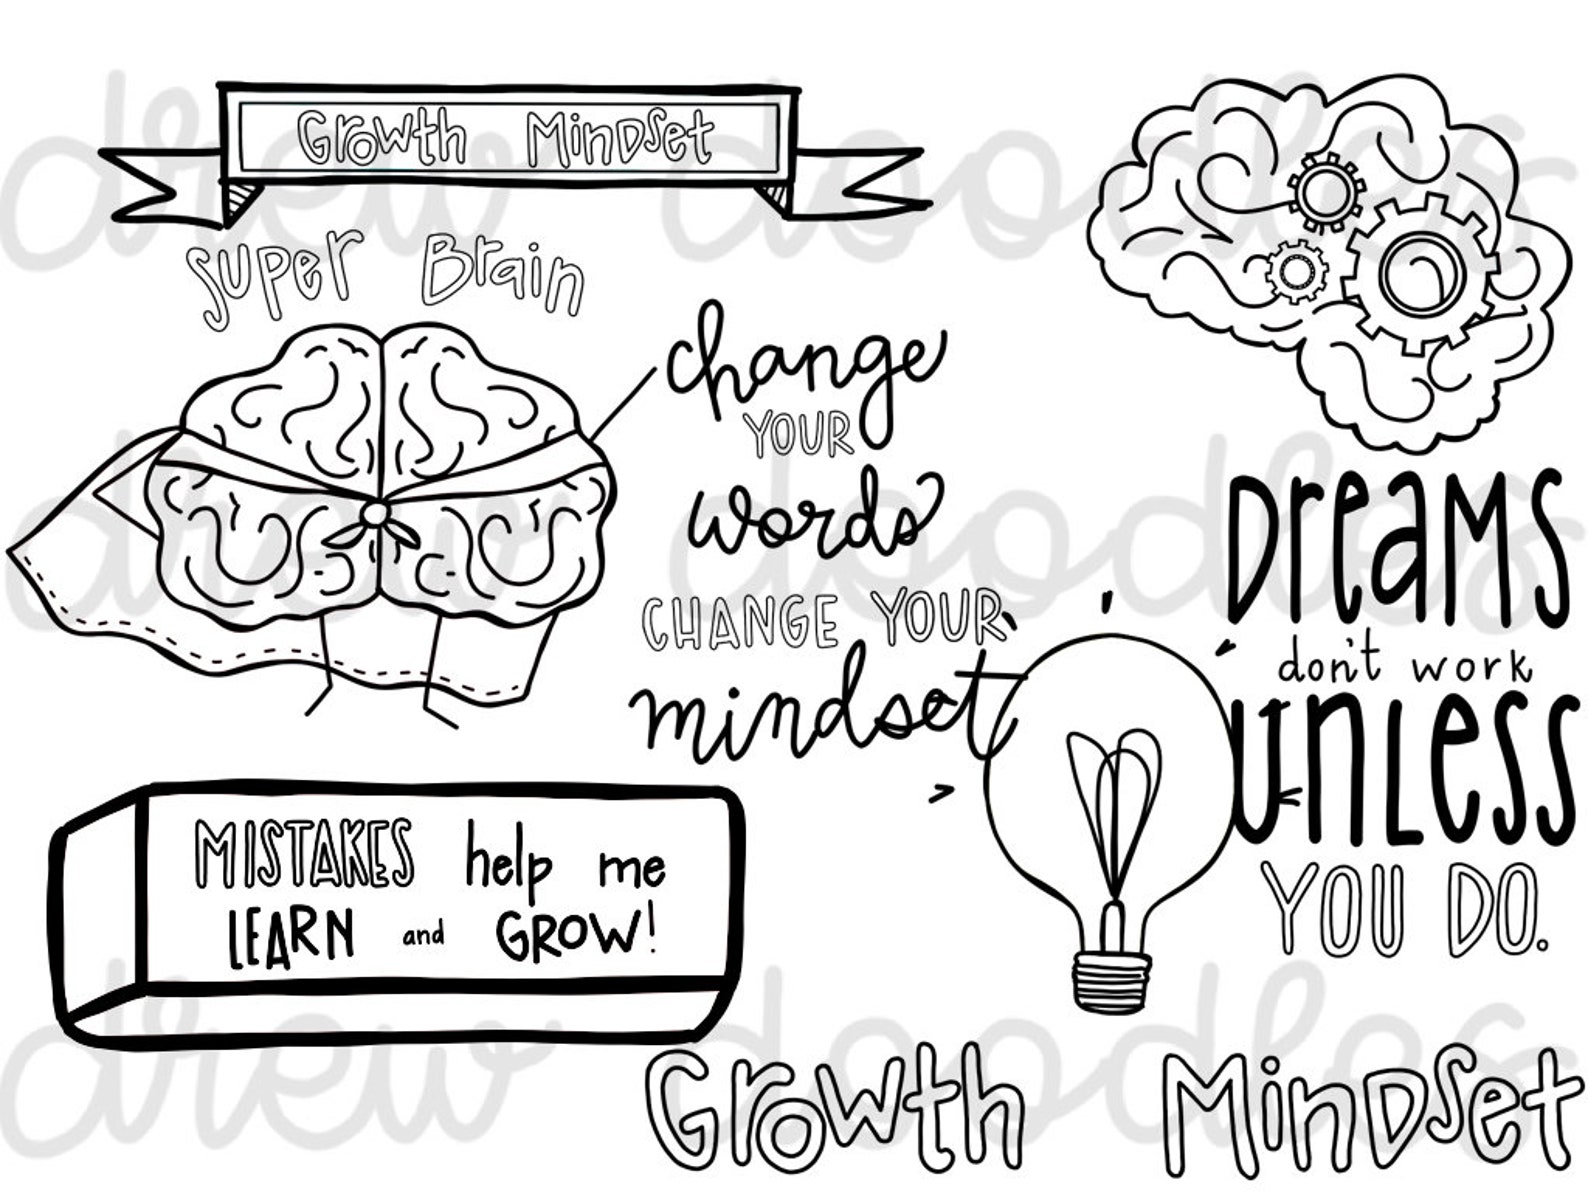 Growth Mindset
Super Brain
change
YOUR
words
CHANGE YOUR
mindset
DreaMS
don't work
UNLeSS
YOU DO.
MISTAKES help me
LEARN and GROW!
Growth Mindset
drew doodles
drew doodles
drew doodles